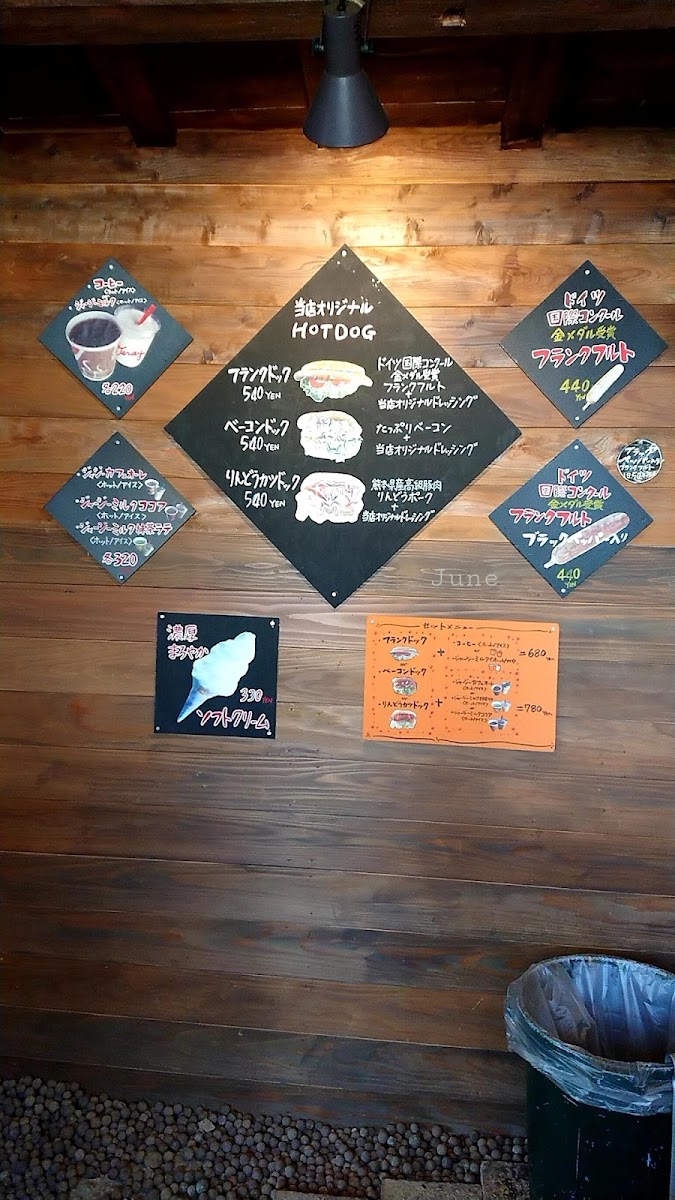 コーヒー
<ホット/アイス>
ジャージーミルク<ホット/アイス>
各220
YEN
ジャージーカフェオーレ
<ホット/アイス>
・ジャージーミルクココア
<ホット/アイス>
・ジャージーミルク抹茶ラテ
<ホット/アイス>
各320
当店オリジナル
HOTDOG
フランクドック
540 YEN
ドイツ国際コンクール
金メダル受賞
フランクフルト
+
当店オリジナルドレッシング
ベーコンドック
540 YEN
たっぷりベーコン
+
当店オリジナルドレッシング
りんどうカツドック
540 YEN
熊本県産高級豚肉
りんどうポーク
+
当店オリジナルドレッシング
ドイツ
国際コンクール
金メダル受賞
フランクフルト
440
YEN
ドイツ
国際コンクール
金メダル受賞
フランクフルト
ブラックペッパー入り
440
YEN
ブラック
フランクフルト
June
濃厚
まろやか
330 YEN
ソフトクリーム
セットメニュー
・フランクドッグ
or
・ベーコンドッグ
or
・りんどうカツドック
+
・コーヒー<ホット/アイス>
or
・ジャージーミルク<ホット/アイス>
=680 YEN
+
・ジャージーカフェオーレ
<ホット/アイス>
・ジャージーミルクココア
<ホット/アイス>
=780 YEN